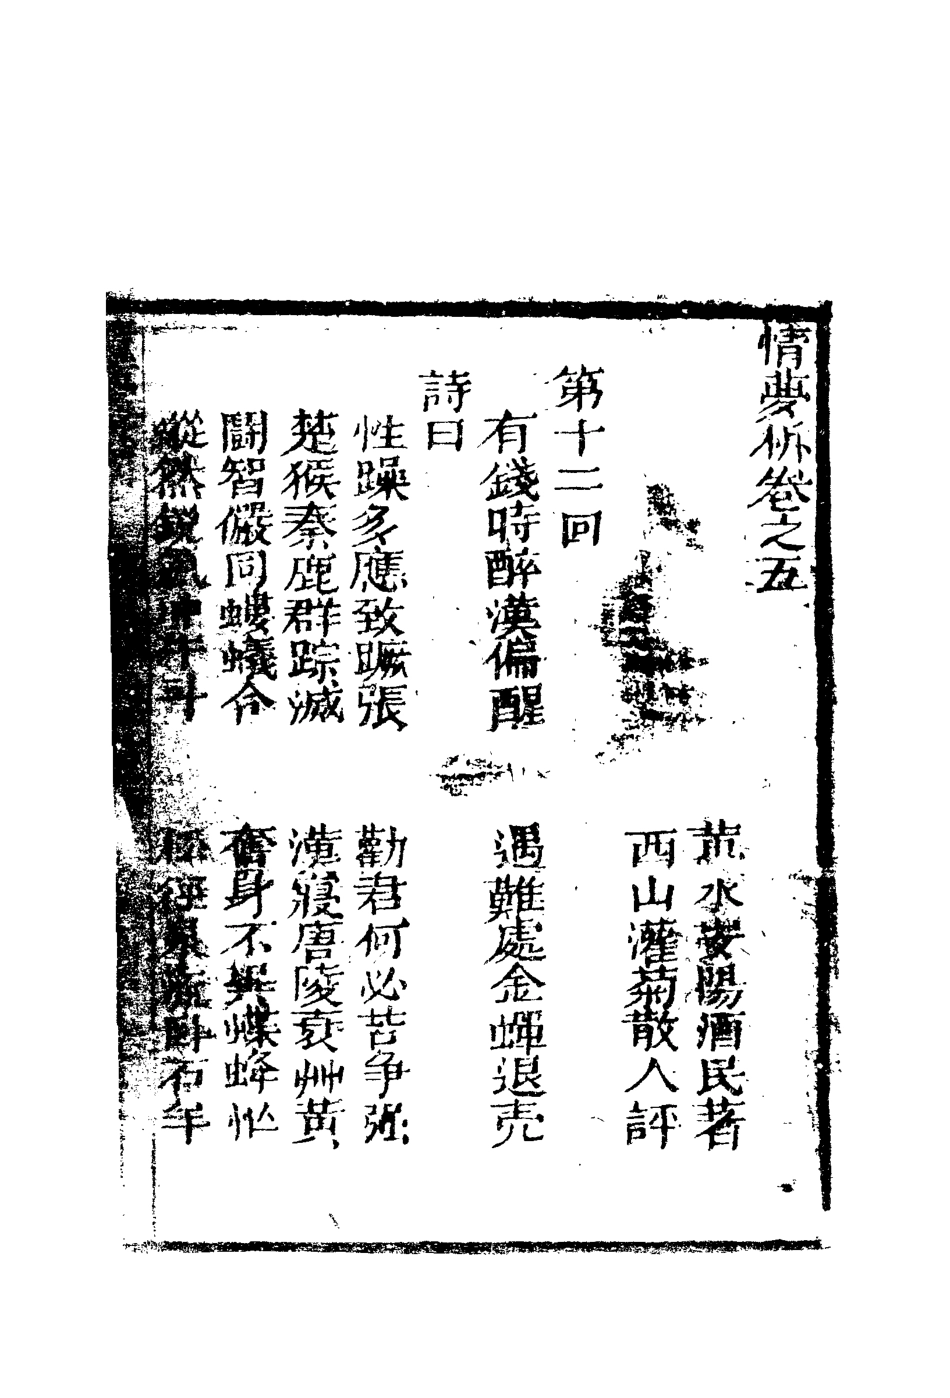 情夢柝卷之五
荒水安陽酒民著
西山灌菊散人評
第十二回
有錢時醉漢偏醒　遇難處金蟬退売
詩曰
性躁多應致蹶張　勸君何必苦争強
楚猴秦鹿群踪滅　漢寢唐陵衰艸黃
鬪智儼同螻蟻合　奮身不異蝶蜂忙
縱然鋭氣冲牛斗　松徑泉臥石牟